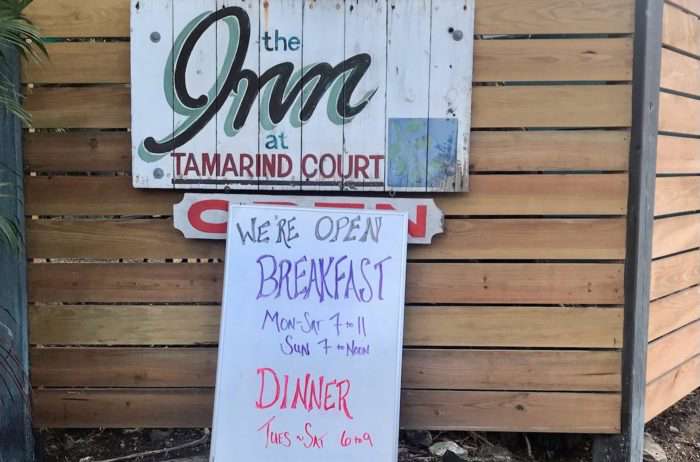 the
Inn
at
TAMARIND COURT
OPEN
WE'RE OPEN
BREAKFAST
MON-SAT 7 to 11
SUN 7 to NOON
DINNER
TUES ~ SAT 6 to 9